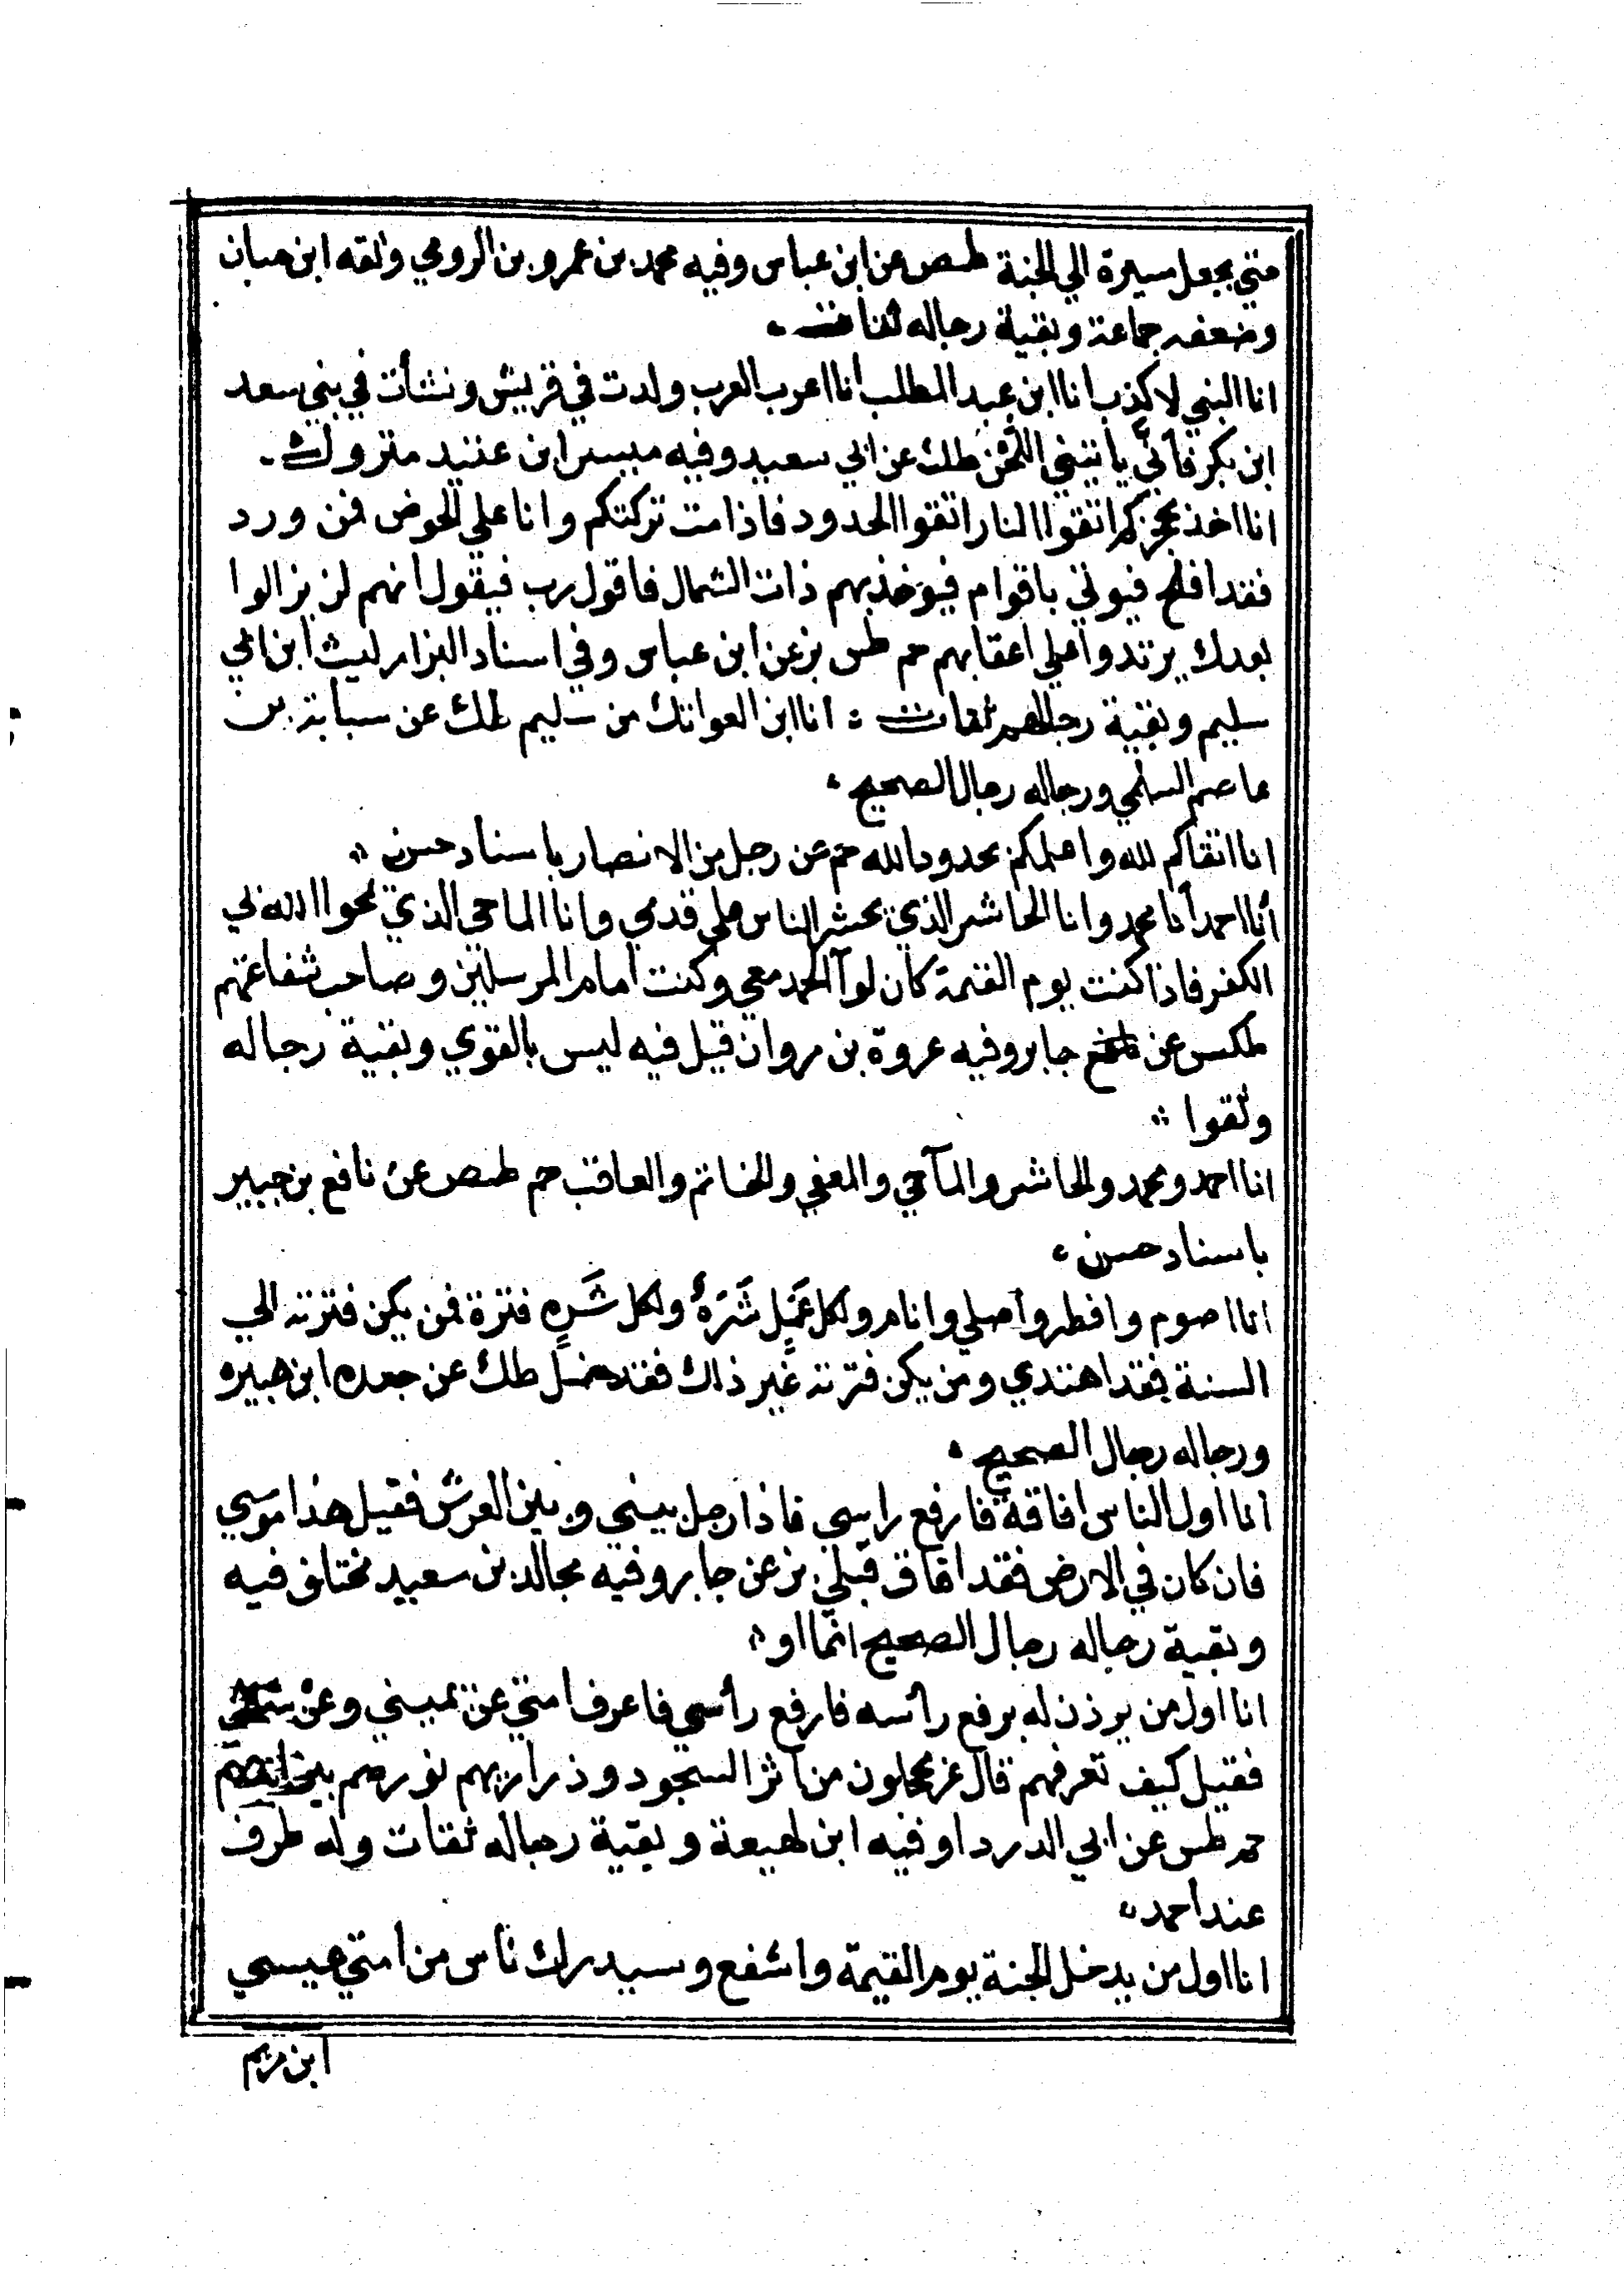 متي يجعل سيرة الي الجنة طص عن ابن عباس وفيه محمد بن عمرو بن الرومي وثقه ابن حبان
وضعفه جماعة وبقية رجاله ثقات
انا النبي لا كذب انا ابن عبد المطلب انا اعرب العرب ولدت في قريش ونشأت في بني سعد
ابن بكر فأنّي يأتيني اللحن طك عن ابي سعيد وفيه مبسر ابن عتيد متروك
انا اخذ بحجزكم اتقوا النار اتقوا الحدود فاذا مت تركتكم وانا علي الحوض فمن ورد
فقد افلح فيوتي باقوام فيوخذ بهم ذات الشمال فاقول رب فيقول انهم لن يزالوا
بعدك يرتدوا علي اعقابهم حم طس بز عن ابن عباس وفي اسناد البزار ليث ابن ابي
سليم وبقية رجالهم ثقات انا ابن العواتك من سليم طك عن سبابة بن
عاصم السلمي ورجاله رجال الصحيح
انا اتقاكم لله واعلمكم بحدود الله حم عن رجل من الانصار باسناد حسن
أنا احمد أنا محمد وانا الحاشر الذي يحشر الناس علي قدمي وانا الماحي الذي يمحوا الله بي
الكفر فاذا كنت يوم القيمة كان لوآ الحمد معي وكنت امام المرسلين وصاحب شفاعتهم
طكس عن جابر وفيه عروة بن مروان قيل فيه ليس بالقوي وبقية رجاله
وثقوا
انا احمد ومحمد والحاشر والمآحي والمقفي والخاتم والعاقب حم طص عن نافع بن جبير
باسناد حسن
انا اصوم وافطر وأصلي وانام ولكل عَمَلٍ شَرَهٌ ولكل شَرَهٍ فترة فمن يكن فترته الي
السنة فقد اهتدي ومن يكن فترته غير ذلك فقد ضل طك عن جعده ابن هبيره
ورجاله رجال الصحيح
انا اول الناس افاقة فارفع راسي فاذا رجل بيني وبين العرش فقيل هذا موسي
فان كان في الارض فقد افاق قبلي بز عن جابر وفيه مجالد بن سعيد مختلف فيه
وبقية رجاله رجال الصحيح انما او
انا اول من يوذن له برفع رأسه فارفع رأسي فاعرف امتي عن يميني وعن
فقيل كيف تعرفهم قال غر محجلون من آثر السجود وذراريهم نورهم بين
حم طس عن ابي الدردا وفيه ابن لهيعة وبقية رجاله ثقات وله طرف
عند أحمد
انا اول من يدخل الجنة يوم القيمة واشفع وسيدرك ناس من امتي عيسي
ابن مريم